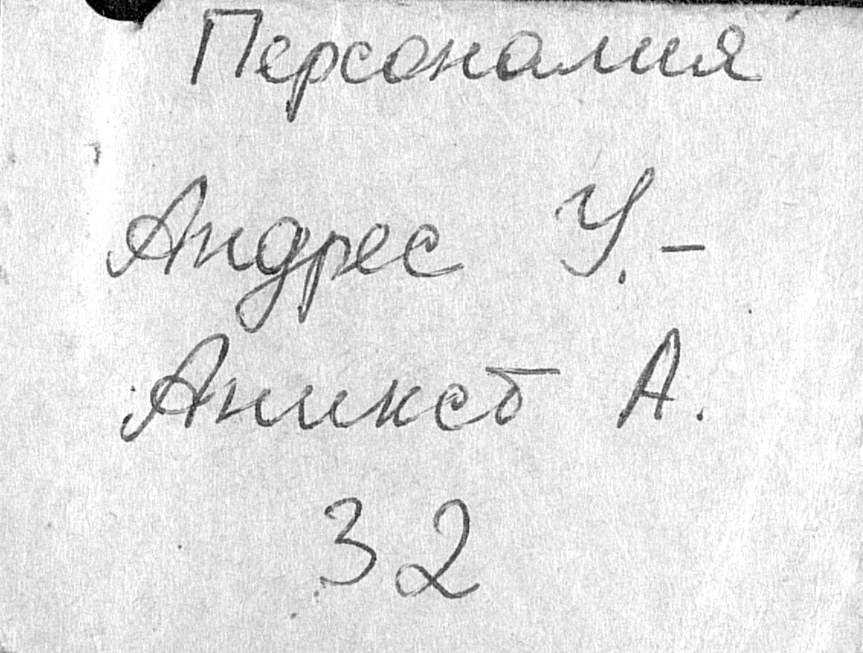 Персоналия
Андрес У.-
Аникст А.
32